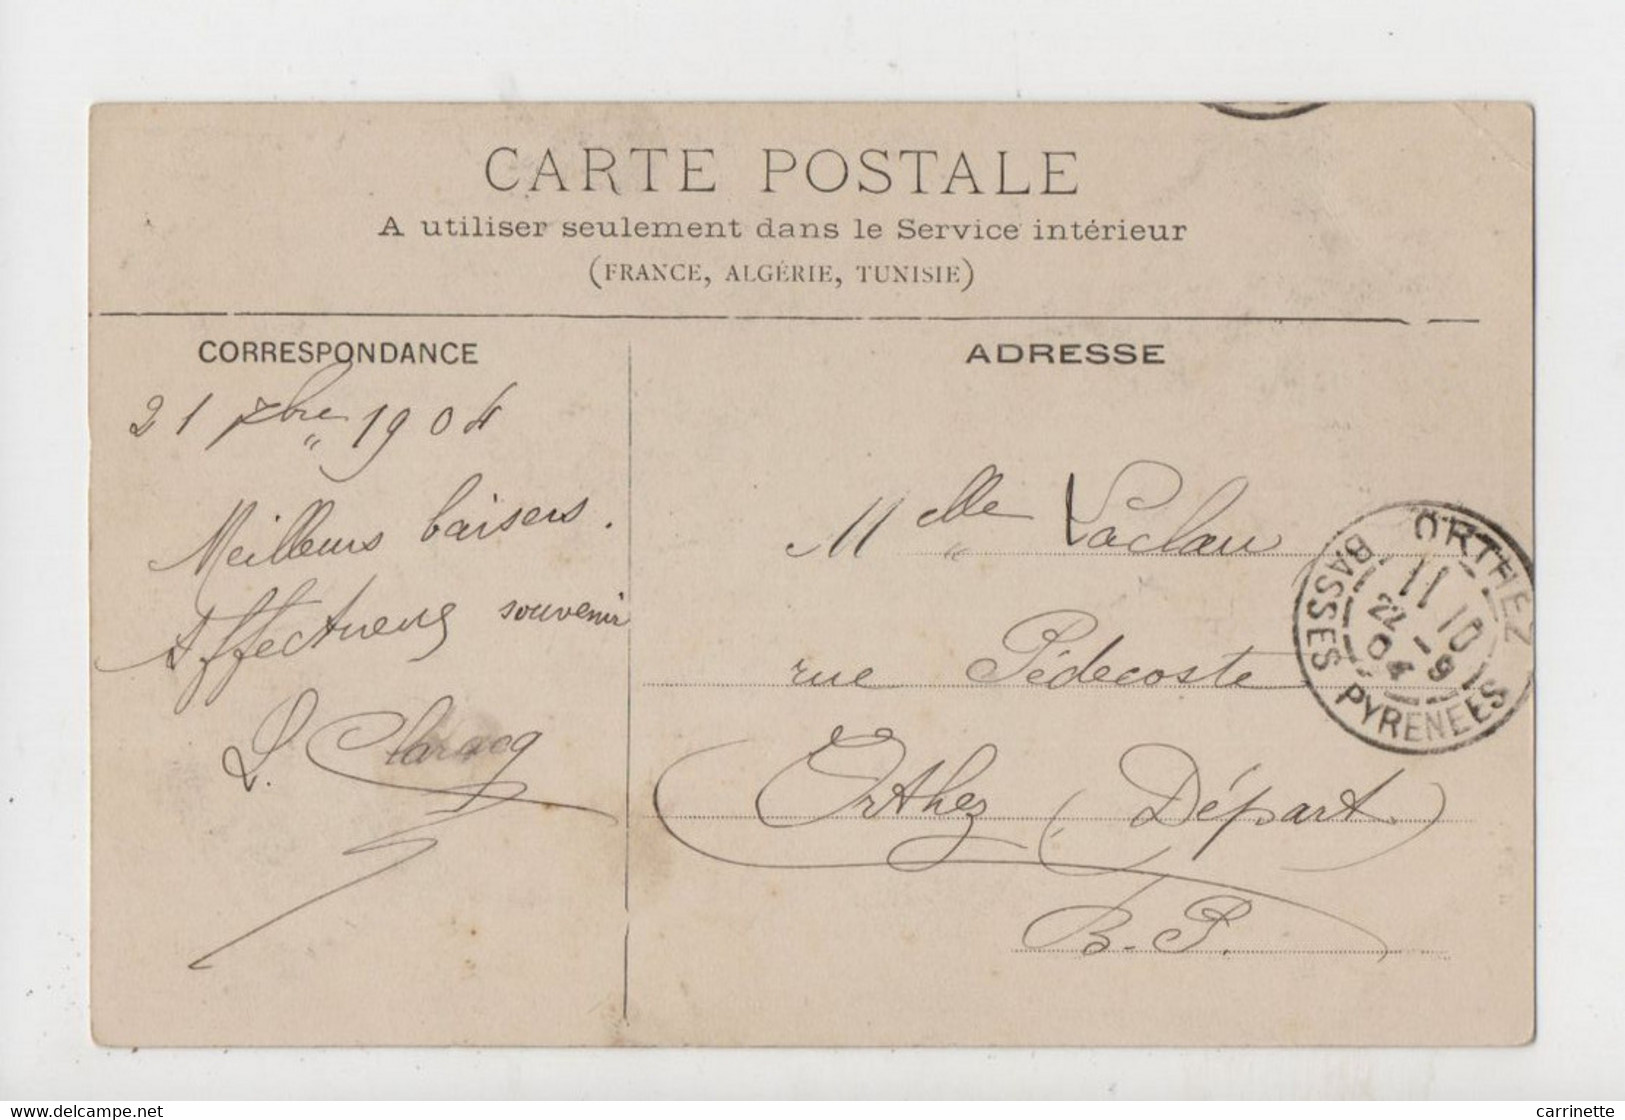 CARTE POSTALE
A utiliser seulement dans le Service intérieur
(FRANCE, ALGÉRIE, TUNISIE)
CORRESPONDANCE
21 7bre 1904
Meilleurs baisers.
Affectueux souvenir
L. Claracq
ADRESSE
Melle Laclau
rue Pédecoste
Orthez (Départ)
B.P.
ORTHEZ
11 10
22 - 9
04
BASSES PYRENEES
carrinette